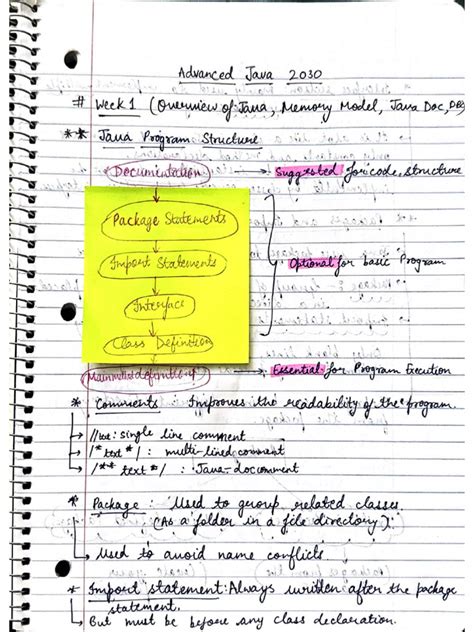 Advanced Java 2030
# Week 1 (Overview of Java, Memory Model, Java Doc,
** Java Program Structure
Documentation → Suggested for code structure
Package Statements
Import Statements
Optional for basic Program
Interface
Class Definition
→ Essential for Program Execution
* Comments : Improves the readability of the program.
→ // : single line comment
→ /* text */ : multi-lined comment
→ /** text */ : Java-document
* Package : Used to group related classes
(As a folder in a file directory).
→ Used to avoid name conflicts
* Import statement: Always written after the package
statement.
→ But must be before any class declaration.